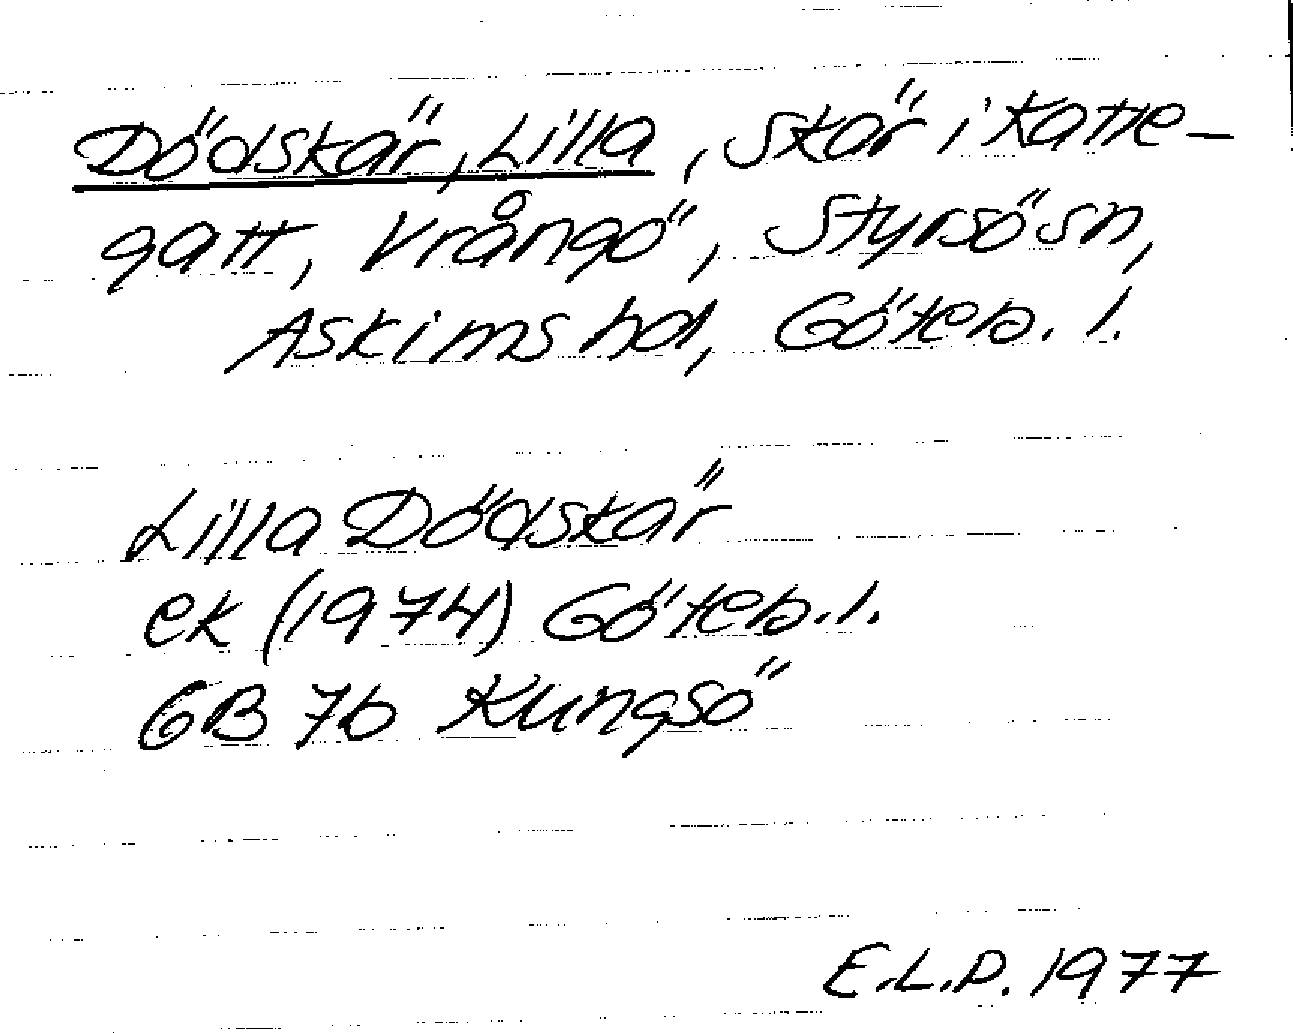 Dödskär, Lilla, skär i Katte-
gatt, Vrångö, Styrsö sn,
Askims hd, Göteb. l.
Lilla Dödskär
ek (1974) Göteb. l.
6B 7b Kungsö
E.L.D. 1977